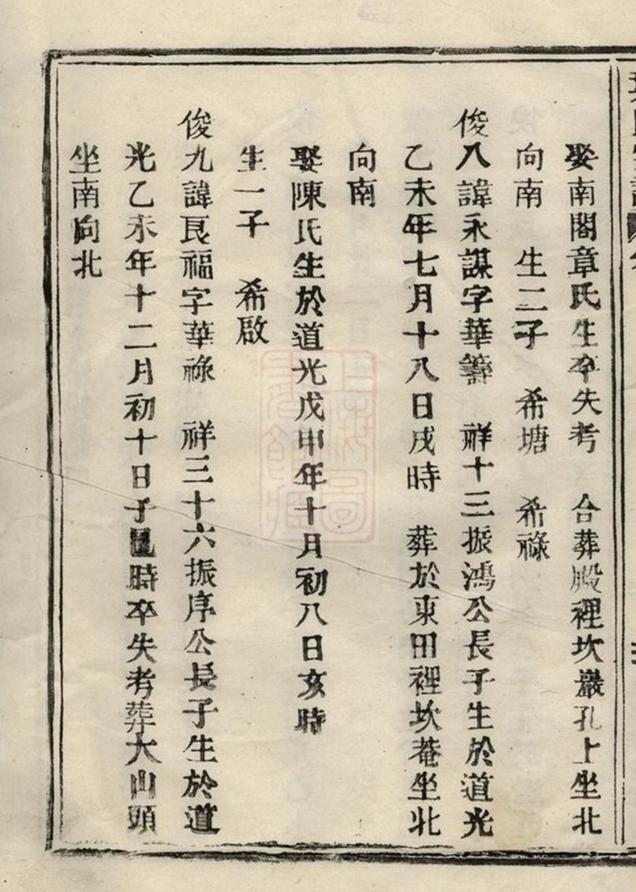 娶南閣章氏生卒失考　合葬殿裡坎巖孔上坐北
向南　生二子　希塘　希祿
俊八諱永謀字華籌　祥十三振鴻公長子生於道光
乙未年七月十八日戌時　葬於東田裡坎菴坐北
向南
娶陳氏生於道光戊申年十月初八日亥時
生一子　希啟
俊九諱良福字華祿　祥三十六振序公長子生於道
光乙未年十二月初十日子時卒失考葬大山頭
坐南向北